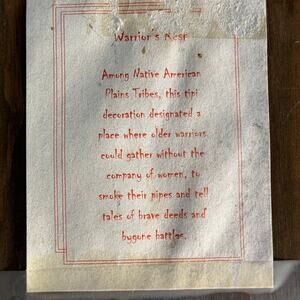 Warrior's Rest
Among Native American
Plains Tribes, this tipi
decoration designated a
place where older warriors
could gather without the
company of women, to
smoke their pipes and tell
tales of brave deeds and
bygone battles.